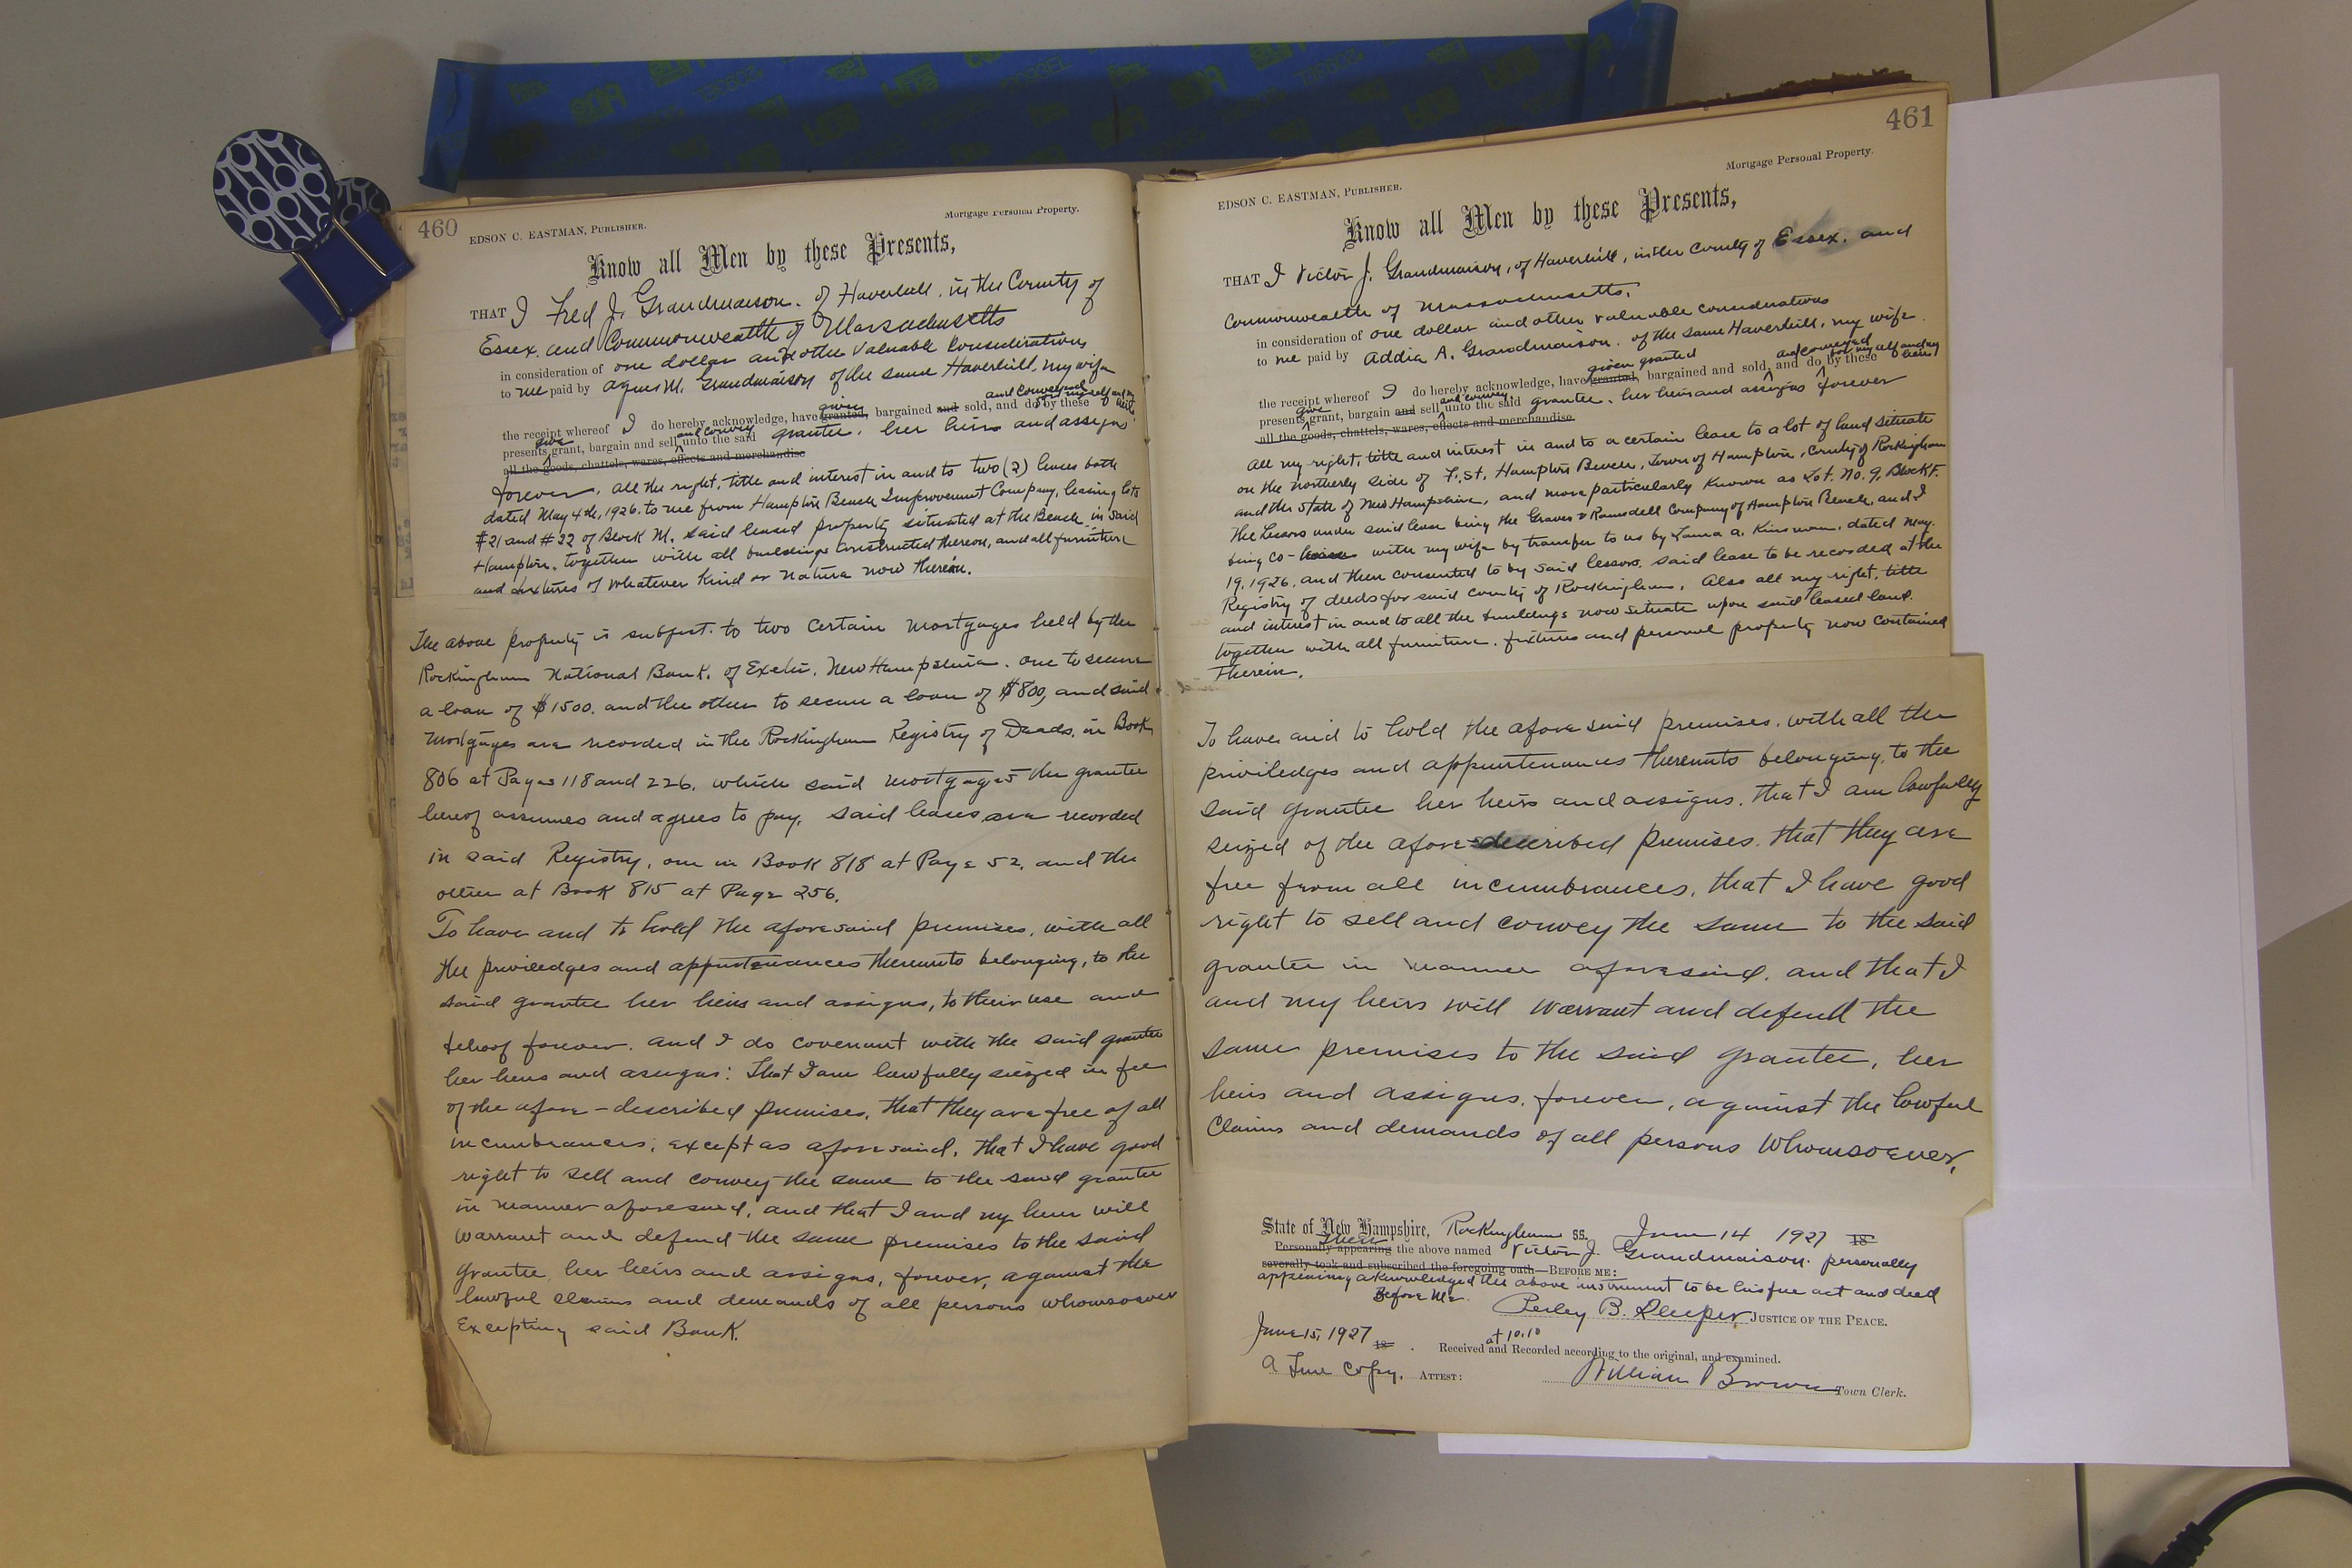 460
EDSON C. EASTMAN, PUBLISHER.
Mortgage Personal Property.
Know all Men by these Presents,
THAT I Fred J. Grandmaison. of Haverhill. in the County of
Essex. and Commonwealth of Massachusetts
in consideration of one dollar and other Valuable Considerations
to me paid by Agnes M. Grandmaison of the same Haverhill, my wife
and conveyed
given for myself and my heirs
the receipt whereof I do hereby acknowledge, have granted, bargained and sold, and do by these
give and convey
presents grant, bargain and sell unto the said grantee. her heirs and assigns
all the goods, chattels, wares, effects and merchandise
forever. all the right, title and interest in and to two (2) leases both
dated May 4th, 1926. to me from Hampton Beach Improvement Company, leasing lots
#21 and #22 of Block M. said leased property situated at the Beach in said
Hampton. together with all buildings constructed thereon, and all furniture
and fixtures of whatever kind or nature now therein.
The above property is subject to two certain mortgages held by the
Rockingham National Bank. of Exeter. New Hampshire. one to secure
a loan of $1500. and the other to secure a loan of $800, and said
mortgages are recorded in the Rockingham Registry of Deeds. in Book
806 at Pages 118 and 226. which said mortgages the grantee
hereof assumes and agrees to pay. said leases are recorded
in said Registry, one in Book 818 at Page 52. and the
other at Book 815 at Page 256.
To have and to hold the aforesaid premises. with all
the priviledges and appurtenances thereunto belonging, to the
said grantee her heirs and assigns, to their use and
behoof forever. and I do covenant with the said grantee
her heirs and assigns: That I am lawfully siezed in fee
of the afore-described premises. that they are free of all
incumbrances, except as aforesaid. that I have good
right to sell and convey the same to the said grantee
in manner aforesaid, and that I and my heirs will
warrant and defend the same premises to the said
grantee, her heirs and assigns, forever, against the
lawful claims and demands of all persons whomsoever
Excepting said Bank.
461
EDSON C. EASTMAN, PUBLISHER.
Mortgage Personal Property.
Know all Men by these Presents,
THAT I Victor J. Grandmaison, of Haverhill, in the County of Essex. and
Commonwealth of Massachusetts.
in consideration of one dollar and other valuable considerations
to me paid by Addia A. Grandmaison. of the same Haverhill, my wife.
given granted and conveyed for myself and my heirs
the receipt whereof I do hereby acknowledge, have granted, bargained and sold, and do by these
give and convey
presents grant, bargain and sell unto the said grantee. her heirs and assigns forever
all the goods, chattels, wares, effects and merchandise.
all my right, title and interest in and to a certain lease to a lot of land situate
on the northerly side of F. St. Hampton Beach, Town of Hampton, County of Rockingham
and the State of New Hampshire, and more particularly known as Lot. No. 9, Block F.
The Lessors under said lease being the Graves & Ramsdell Company of Hampton Beach. and I
being co- with my wife by transfer to us by Laura A. Kinsman. dated May.
19, 1926. and then consented to by said lessors. said lease to be recorded at the
Registry of deeds for said county of Rockingham. Also all my right, title
and interest in and to all the buildings now situate upon said leased land.
together with all furniture. fixtures and personal property now contained
therein.
To have and to hold the aforesaid premises. with all the
priviledges and appurtenances thereunto belonging, to the
said grantee her heirs and assigns. that I am lawfully
seized of the afore-described premises. that they are
free from all incumbrances, that I have good
right to sell and convey the same to the said
grantee in manner aforesaid. and that I
and my heirs will warrant and defend the
same premises to the said grantee, her
heirs and assigns. forever, against the lawful
claims and demands of all persons Whomsoever,
State of New Hampshire, Rockingham SS. June 14 1927 18
Then
Personally appearing the above named Victor J. Grandmaison. personally
severally took and subscribed the foregoing oath—BEFORE ME:
appearing acknowledged the above instrument to be his free act and deed
Before Me. Perley B. Sleeper JUSTICE OF THE PEACE.
June 15, 1927 18 . at 10.10
Received and Recorded according to the original, and examined.
A True Copy. ATTEST: William Brown Town Clerk.